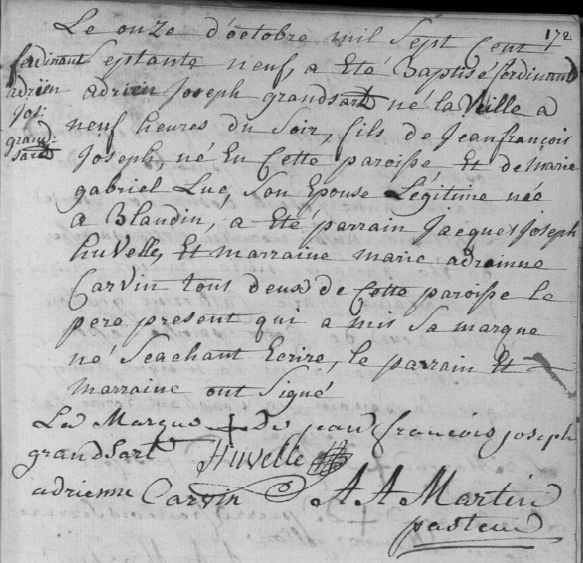 172
Le onze d'octobre mil Sept Cent
Septante neuf, a Eté Baptisé ferdinand
adrien Joseph grandsart né la Veille a
neuf heures du Soir, fils de Jeanfrançois
Joseph, né En Cette paroisse Et de marie
gabriel Luc Son Epouse Légitime née
a Blandin, a eté parrain Jacques Joseph
huvelle, Et marraine marie adrienne
Carvin tous deux de Cette paroisse le
pere present qui a mis Sa marque
né Seachant Ecrire, le parrain Et
marraine ont Signé
ferdinant
adriën
Jos:
grand:
sart
La Marque + de jean françois joseph
grandsart Huvelle
adrienne Carvin A A Martin
pasteur